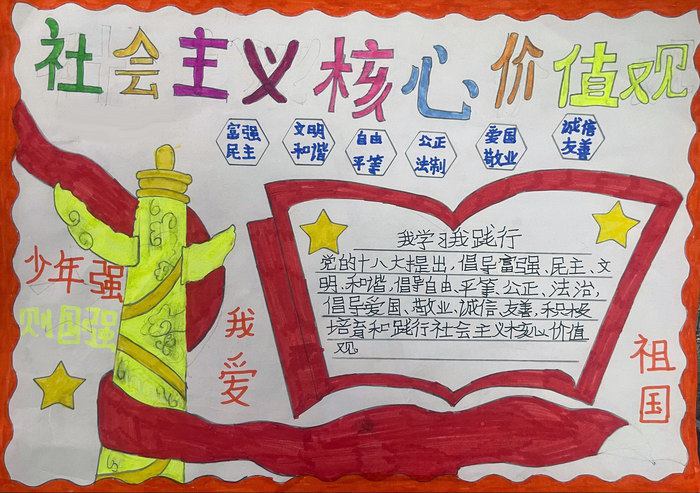 社会主义核心价值观
富强 文明 自由 公正 爱国 诚信
民主 和谐 平等 法制 敬业 友善
我学习我践行
党的十八大提出，倡导富强、民主、文
明、和谐，倡导自由、平等、公正、法治，
倡导爱国、敬业、诚信、友善，积极
培育和践行社会主义核心价值
观
少年强
则国强
我爱
祖国